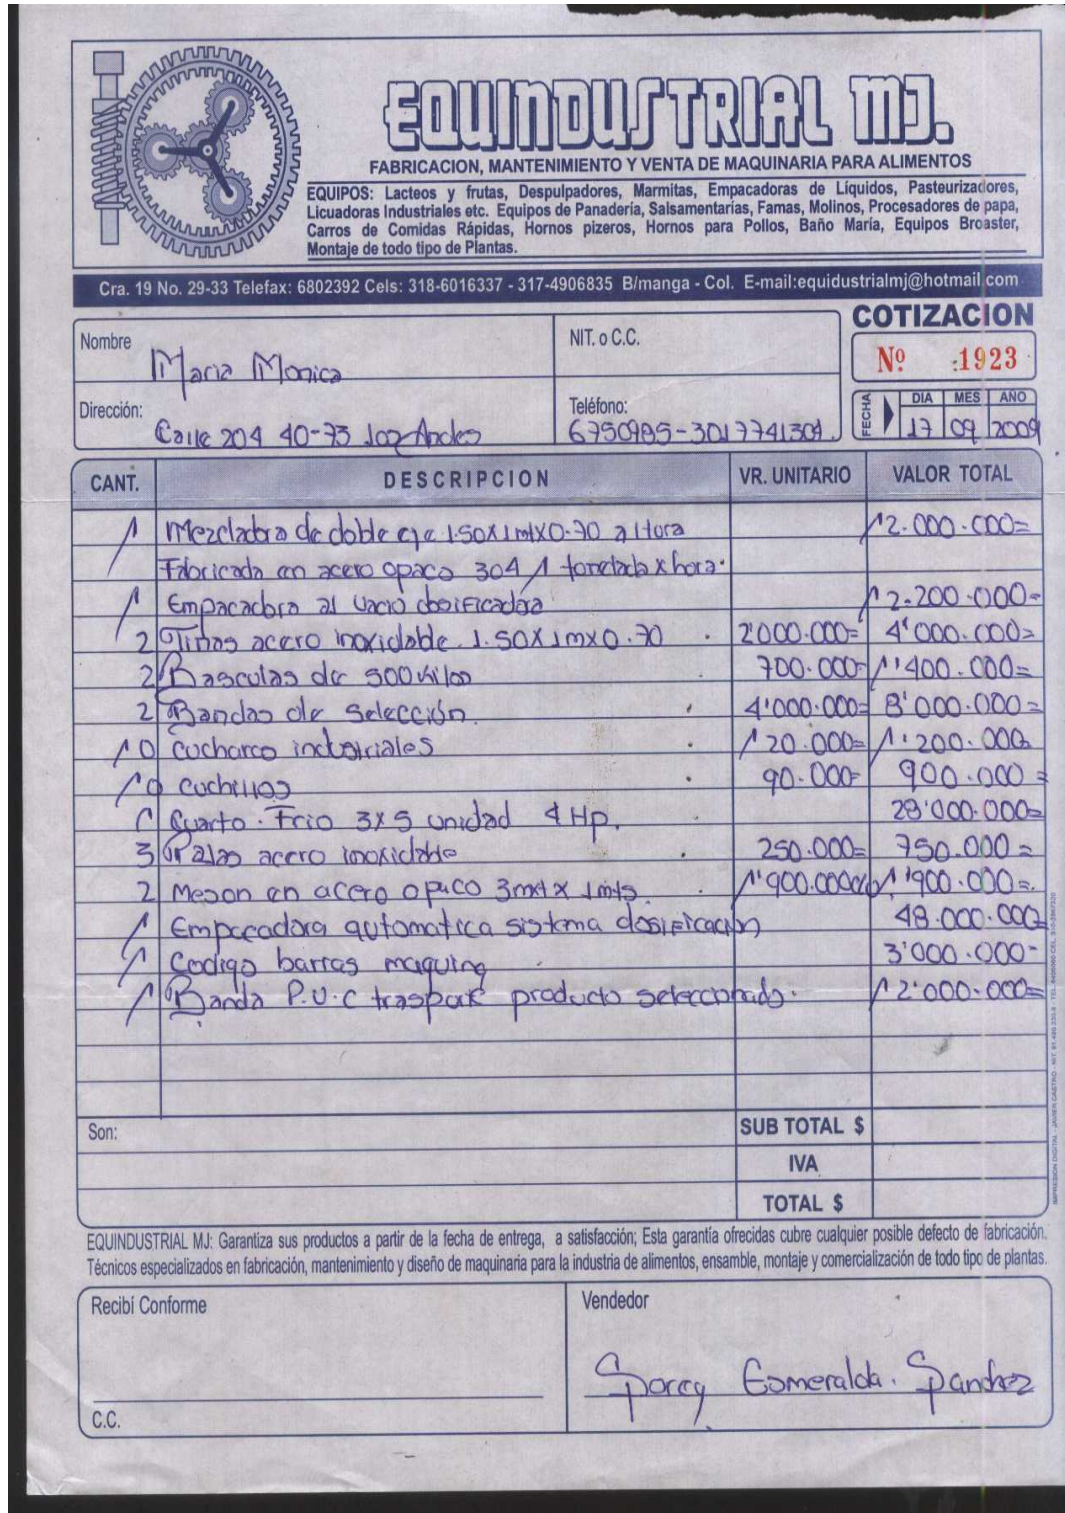 EQUINDUSTRIAL MJ.
FABRICACION, MANTENIMIENTO Y VENTA DE MAQUINARIA PARA ALIMENTOS
EQUIPOS: Lacteos y frutas, Despulpadores, Marmitas, Empacadoras de Líquidos, Pasteurizadores,
Licuadoras Industriales etc. Equipos de Panadería, Salsamentarías, Famas, Molinos, Procesadores de papa,
Carros de Comidas Rápidas, Hornos pizeros, Hornos para Pollos, Baño María, Equipos Broaster,
Montaje de todo tipo de Plantas.
Cra. 19 No. 29-33 Telefax: 6802392 Cels: 318-6016337 - 317-4906835 B/manga - Col. E-mail:equidustrialmj@hotmail.com
COTIZACION
Nº 1923
Nombre Maria Monica
NIT. o C.C.
Dirección: Calle 204 40-73 Los Andes
Teléfono: 6750985-3017741304.
FECHA DIA MES AÑO
17 09 2009
CANT. DESCRIPCION VR. UNITARIO VALOR TOTAL
1 Mezcladora de doble eje 1.50x1mtx0.70 altura 12.000.000=
Fabricada en acero opaco 304 1 tonelada x hora.
1 Empacadora al vacio dosificadora 12.200.000=
2 Tinas acero inoxidable 1.50x1mx0.70 2'000.000= 4'000.000=
2 Basculas de 500 kilos 700.000= 1'400.000=
2 Bandas de selección. 4'000.000= 8'000.000=
10 cucharco industriales 120.000= 1'200.000
10 cuchillos 90.000= 900.000=
1 Cuarto Frio 3x5 unidad 4 Hp. 28'000.000=
3 Palas acero inoxidable 250.000= 750.000=
2 Meson en acero opaco 3mt x 1mts. 1'900.000 1'900.000=
1 Empacadora automatica sistema dosificacion 48.000.000=
1 Codigo barras maquina 3'000.000=
1 Banda P.V.C trasporte producto seleccionado. 12'000.000=
Son: SUB TOTAL $
IVA
TOTAL $
EQUINDUSTRIAL MJ: Garantiza sus productos a partir de la fecha de entrega, a satisfacción; Esta garantía ofrecidas cubre cualquier posible defecto de fabricación.
Técnicos especializados en fabricación, mantenimiento y diseño de maquinaria para la industria de alimentos, ensamble, montaje y comercialización de todo tipo de plantas.
Recibí Conforme
C.C.
Vendedor
Esmeralda. Sanchez